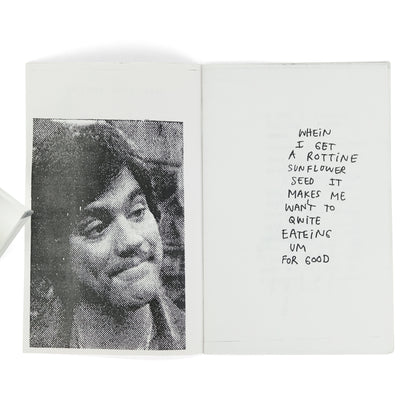 WHEIN
I GET
A ROTTINE
SUNFLOWER
SEED IT
MAKES ME
WAN'T TO
QWITE
EATEING
UM
FOR GOOD